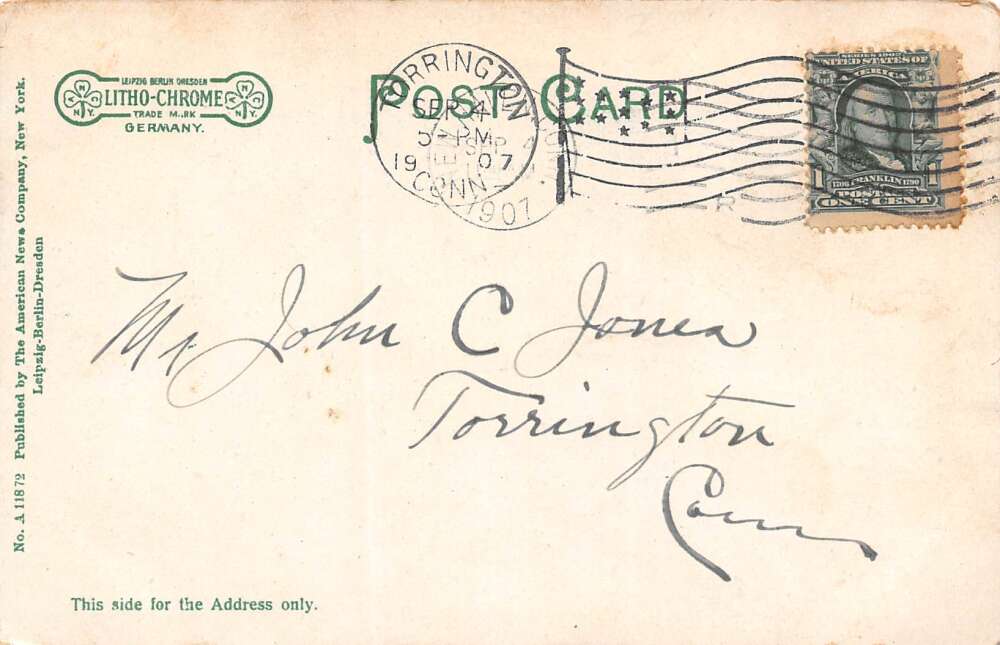 No. A 11872 Published by The American News Company, New York.
Leipzig-Berlin-Dresden
LEIPZIG BERLIN DRESDEN
LITHO-CHROME
TRADE MARK
N.Y. N.Y.
GERMANY.
POST CARD
TORRINGTON
SEP 4
5-PM
19 07
CONN
1907
SERIES 1902
UNITED STATES OF
AMERICA
1 1706 FRANKLIN 1790 1
POSTAGE
ONE CENT
Mr John C Jones
Torrington
Conn
This side for the Address only.